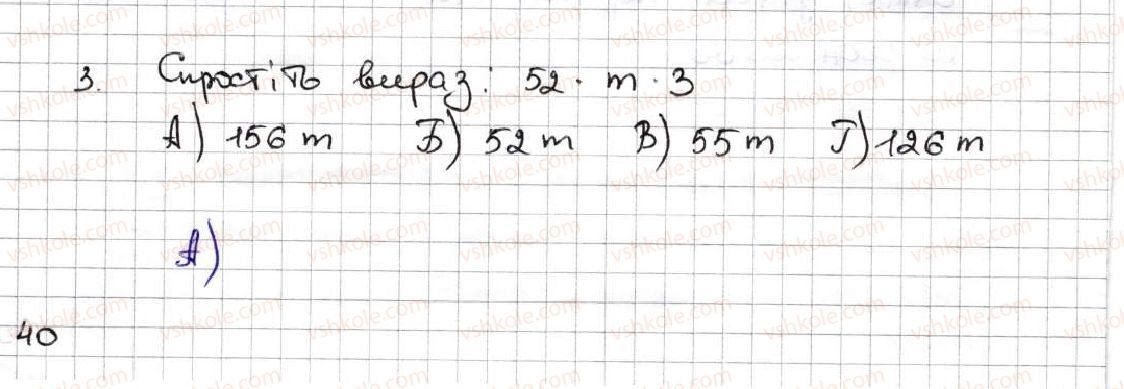 3. Спростіть вираз: 52 · m · 3
А) 156 m Б) 52 m В) 55 m Г) 126 m
А)
40